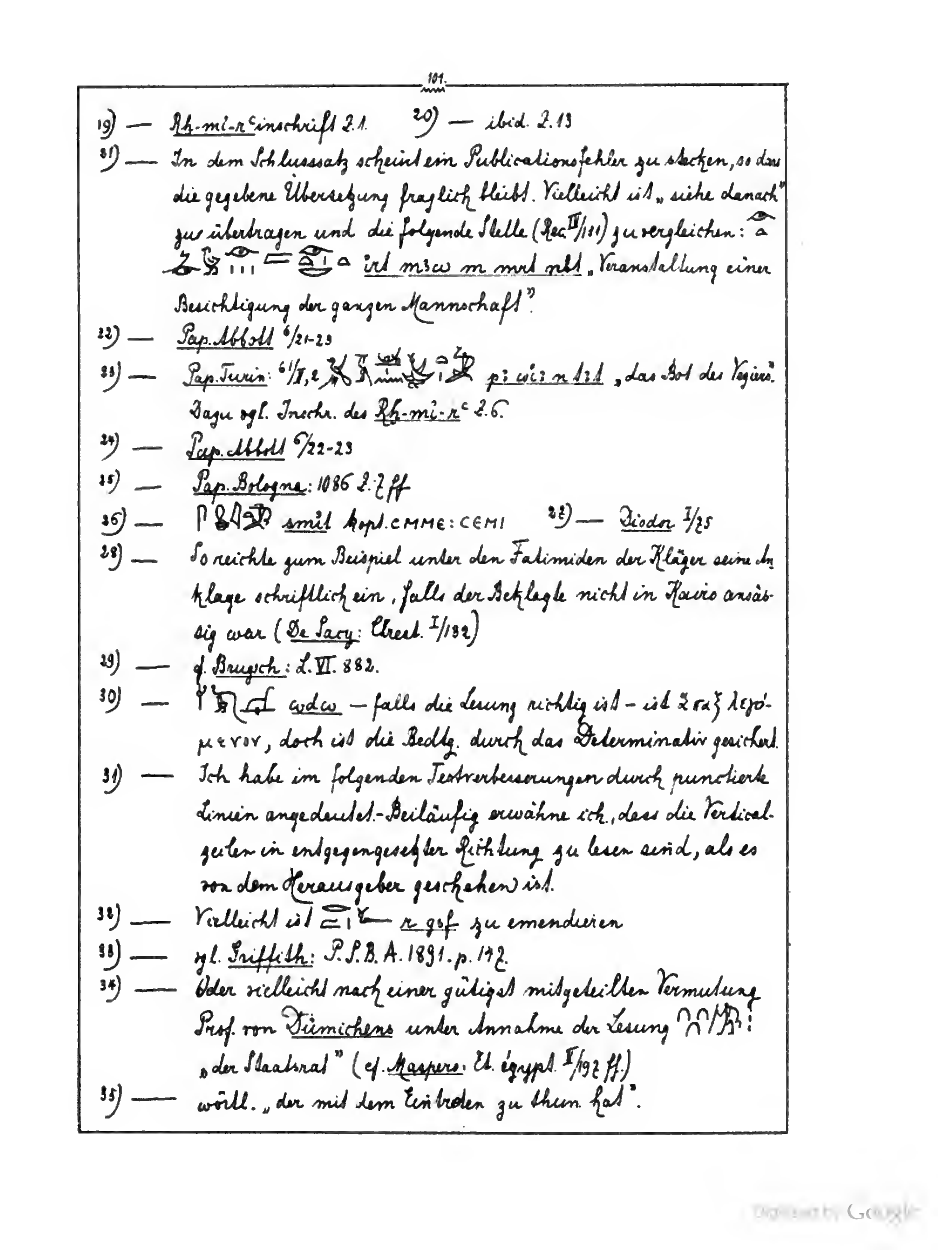 101.
19) — Rh-mi-rꜥinschrift Z.1. 20) — ibid. Z.13
21) — In dem Schlusssatz scheint ein Publicationsfehler zu stecken, so dass
die gegebene Übersetzung fraglich bleibt. Vielleicht ist „siehe danach"
zu übertragen und die folgende Stelle (Rec. IV/131) zu vergleichen:
irt m3w m mrt nbt „Veranstaltung einer
Besichtigung der ganzen Mannschaft".
22) — Pap. Abbott 6/21-23
23) — Pap. Turin: 61/II,2 „das Bot des Veziers".
Dazu vgl. Inschr. des Rh-mi-rꜥ Z.6.
24) — Pap. Abbott 6/22-23
25) — Pap. Bologna: 1086 Z.7 ff
26) — smit kopt. ⲥⲙⲙⲉ: ⲥⲉⲙⲓ 27) — Diodor I/75
28) — So reichte zum Beispiel unter den Fatimiden der Kläger seine An
klage schriftlich ein, falls der Beklagte nicht in Kairo ansäs-
sig war (De Sacy: Chrest. I/132)
29) — cf. Brugsch: L. VI. 882.
30) — wdw — falls die Lesung richtig ist – ist ἅπαξ λεγό-
μενον, doch ist die Bedtg. durch das Determinativ gesichert.
31) — Ich habe im folgenden Textverbesserungen durch punctierte
Linien angedeutet.- Beiläufig erwähne ich, dass die Vertical-
zeilen in entgegengesetzter Richtung zu lesen sind, als es
von dem Herausgeber geschehen ist.
32) — Vielleicht ist r gsf zu emendieren
33) — vgl. Griffith: P.S.B.A. 1891. p. 147.
34) — Oder vielleicht nach einer gütigst mitgeteilten Vermutung
Prof. von Dümichens unter Annahme der Lesung :
„der Staatsrat" (cf. Maspero: Et. égypt. II/197 ff.)
35) — wörtl. „der mit dem Eintreten zu thun hat".
Digitized by Google